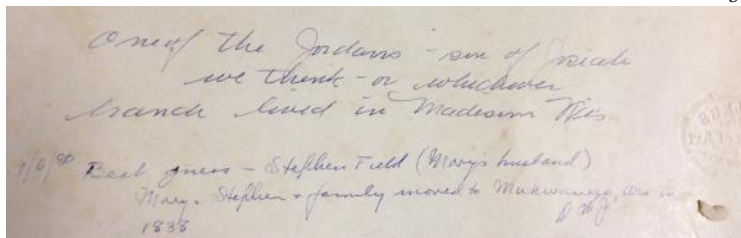 One of the Jordans - son of Josiah
we think - or whichever
branch lived in Madison Wis
7/6/80 Best guess - Stephen Field (Mary's husband)
Mary, Stephen + family moved to Mukwonago, Wis in
1838